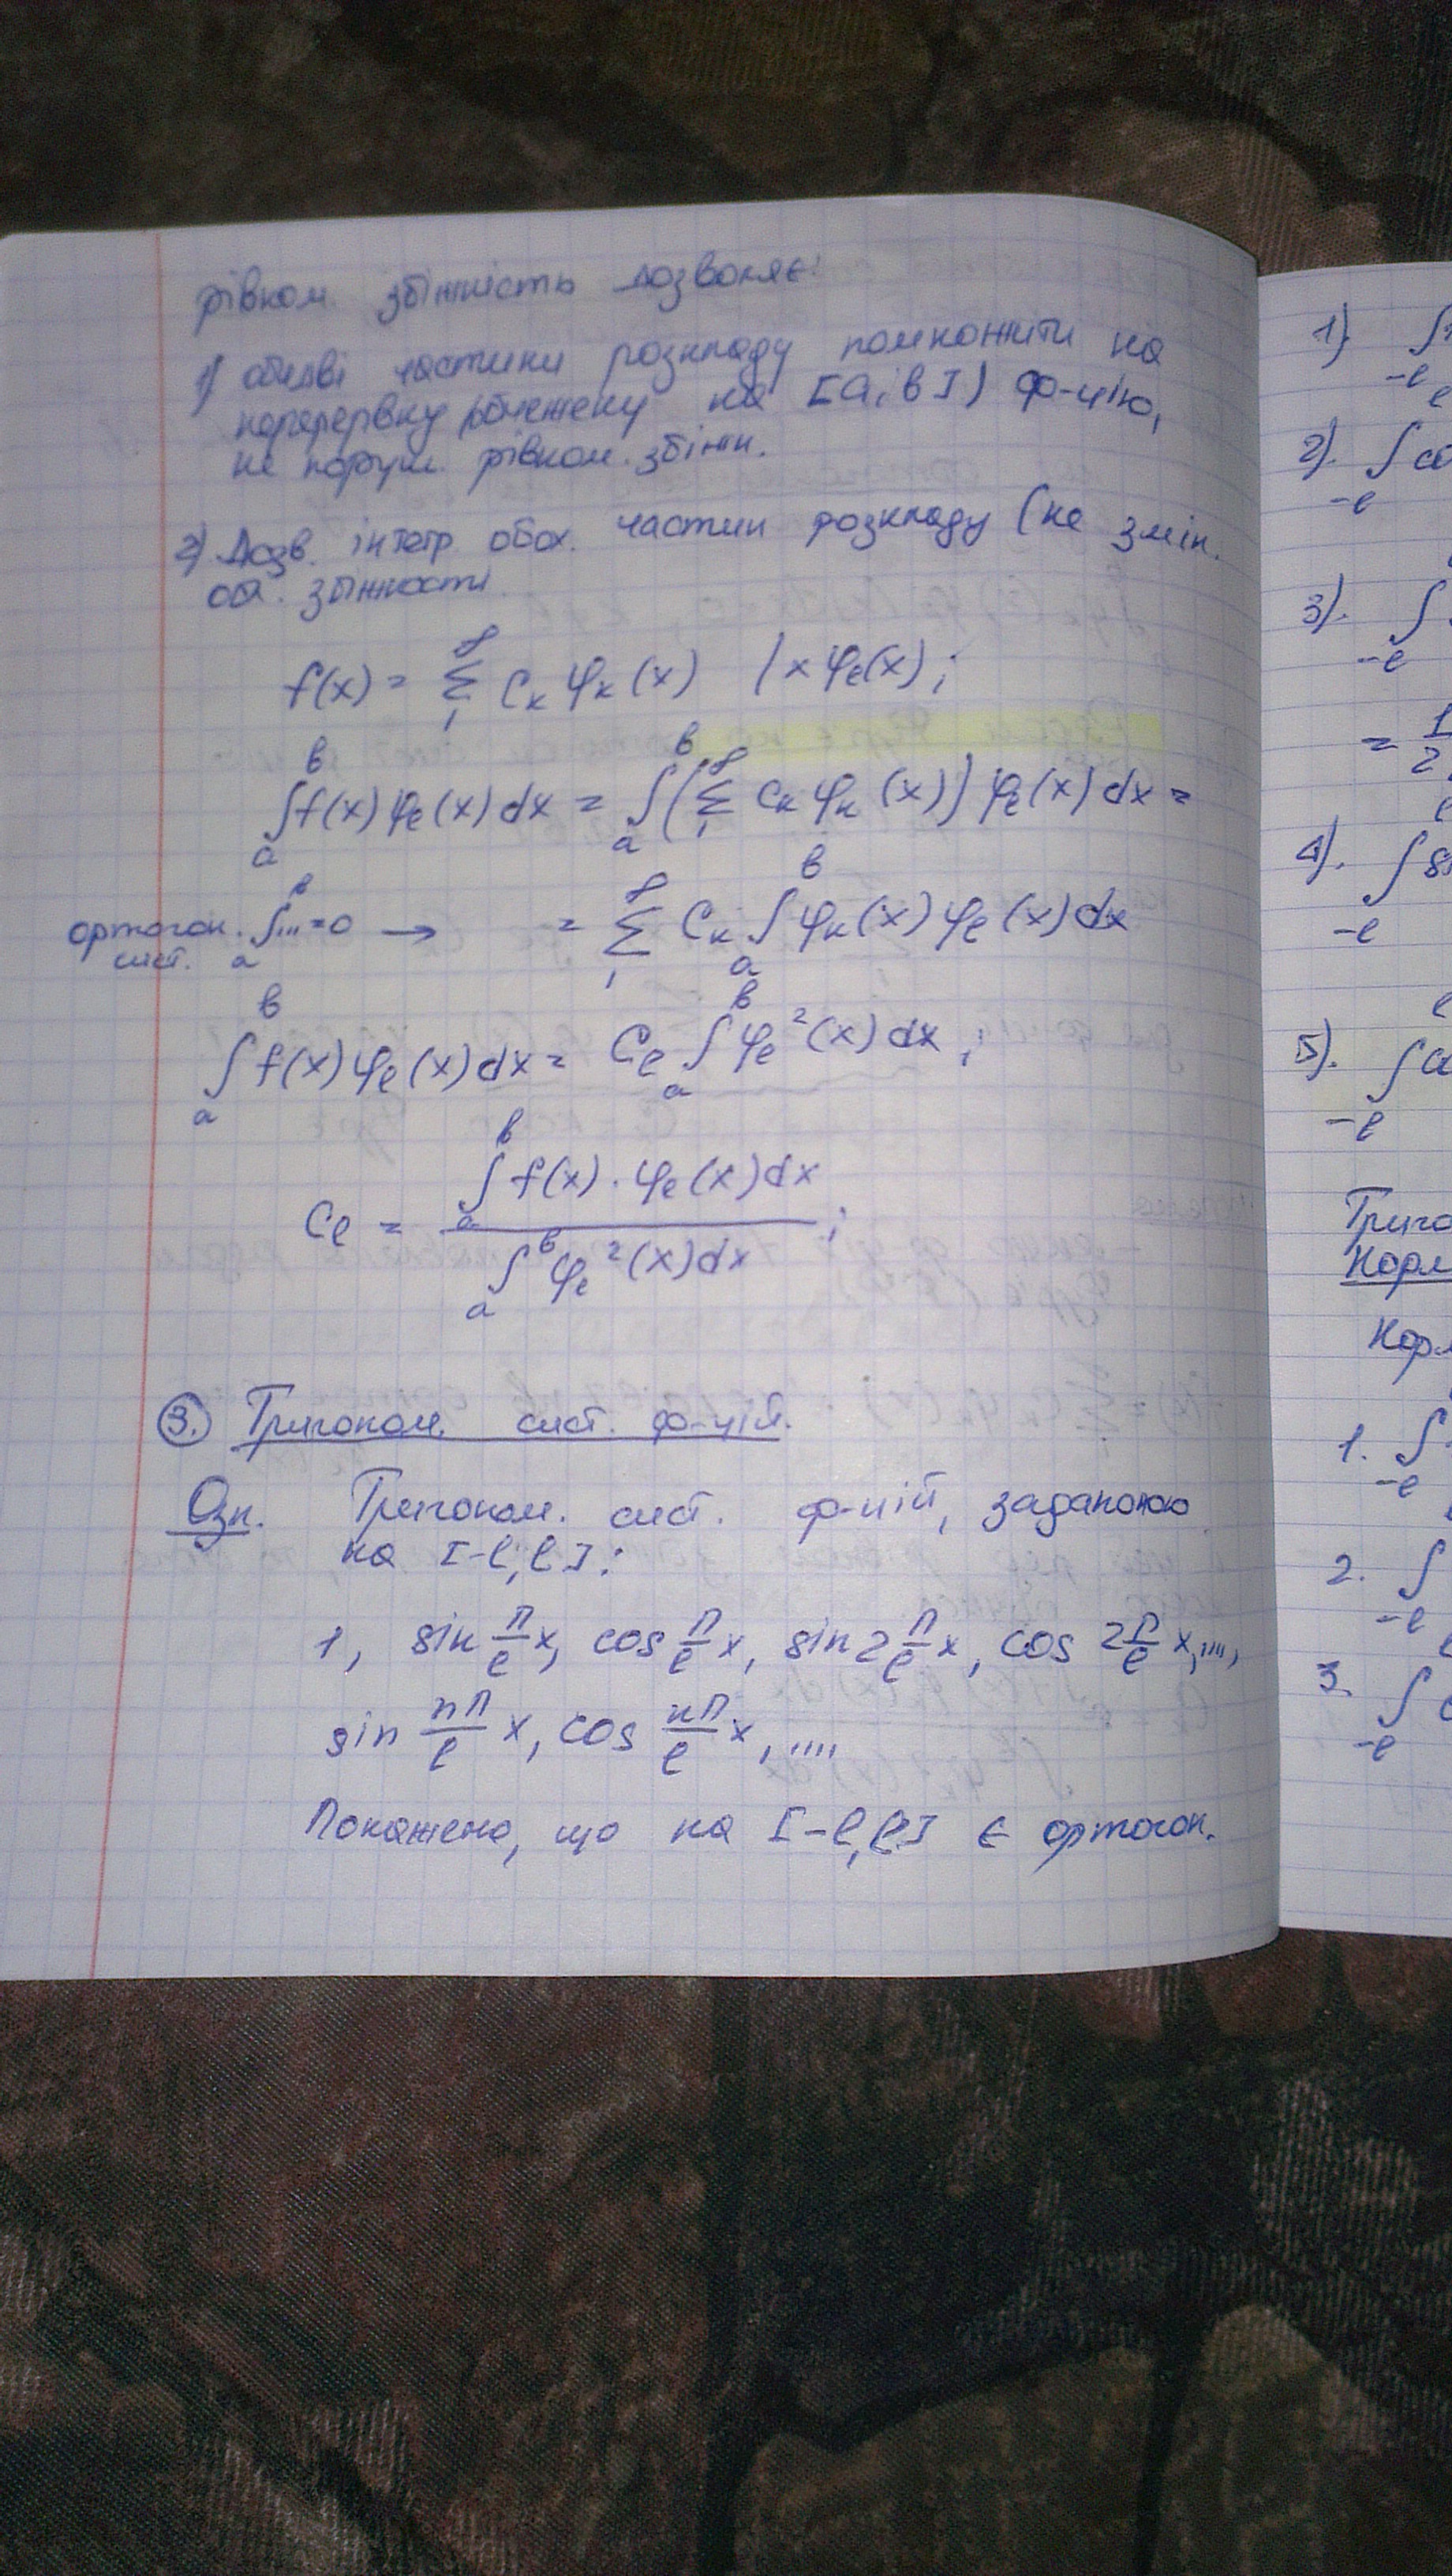 рівном. збіжність дозволяє:
1) обидві частини розкладу помножити на
неперервну (обмежену на [a; b]) ф-цію,
не поруш. рівном. збіжн.
2) Дозв. інтегр. обох. частин розкладу (не змін.
обл. збіжності
f(x) = ∑₁^∞ Cₖ φₖ(x) | × φₑ(x);
∫ₐᵇ f(x) φₑ(x) dx = ∫ₐᵇ (∑₁^∞ Cₖ φₖ(x)) φₑ(x) dx =
ортогон. сист. ∫ₐᵇ ... = 0 → = ∑₁^∞ Cₖ ∫ₐᵇ φₖ(x) φₑ(x) dx
∫ₐᵇ f(x) φₑ(x) dx = Cₑ ∫ₐᵇ φₑ²(x) dx;
Cₑ = ∫ₐᵇ f(x) · φₑ(x) dx / ∫ₐᵇ φₑ²(x) dx;
3. Тригоном. сист. ф-цій.
Озн. Тригоном. сист. ф-цій, заданою
на [-l, l]:
1, sin π/l x, cos π/l x, sin 2π/l x, cos 2π/l x, ...,
sin nπ/l x, cos nπ/l x, ....
Покажемо, що на [-l, l] є ортогон.
1). ∫
-l
2). ∫ co
-l
3). ∫
-l
= 1/2
4). ∫ si
-l
5). ∫
-l
Триго
Норм
Норм
1. ∫
-l
2. ∫
-l
3. ∫
-l